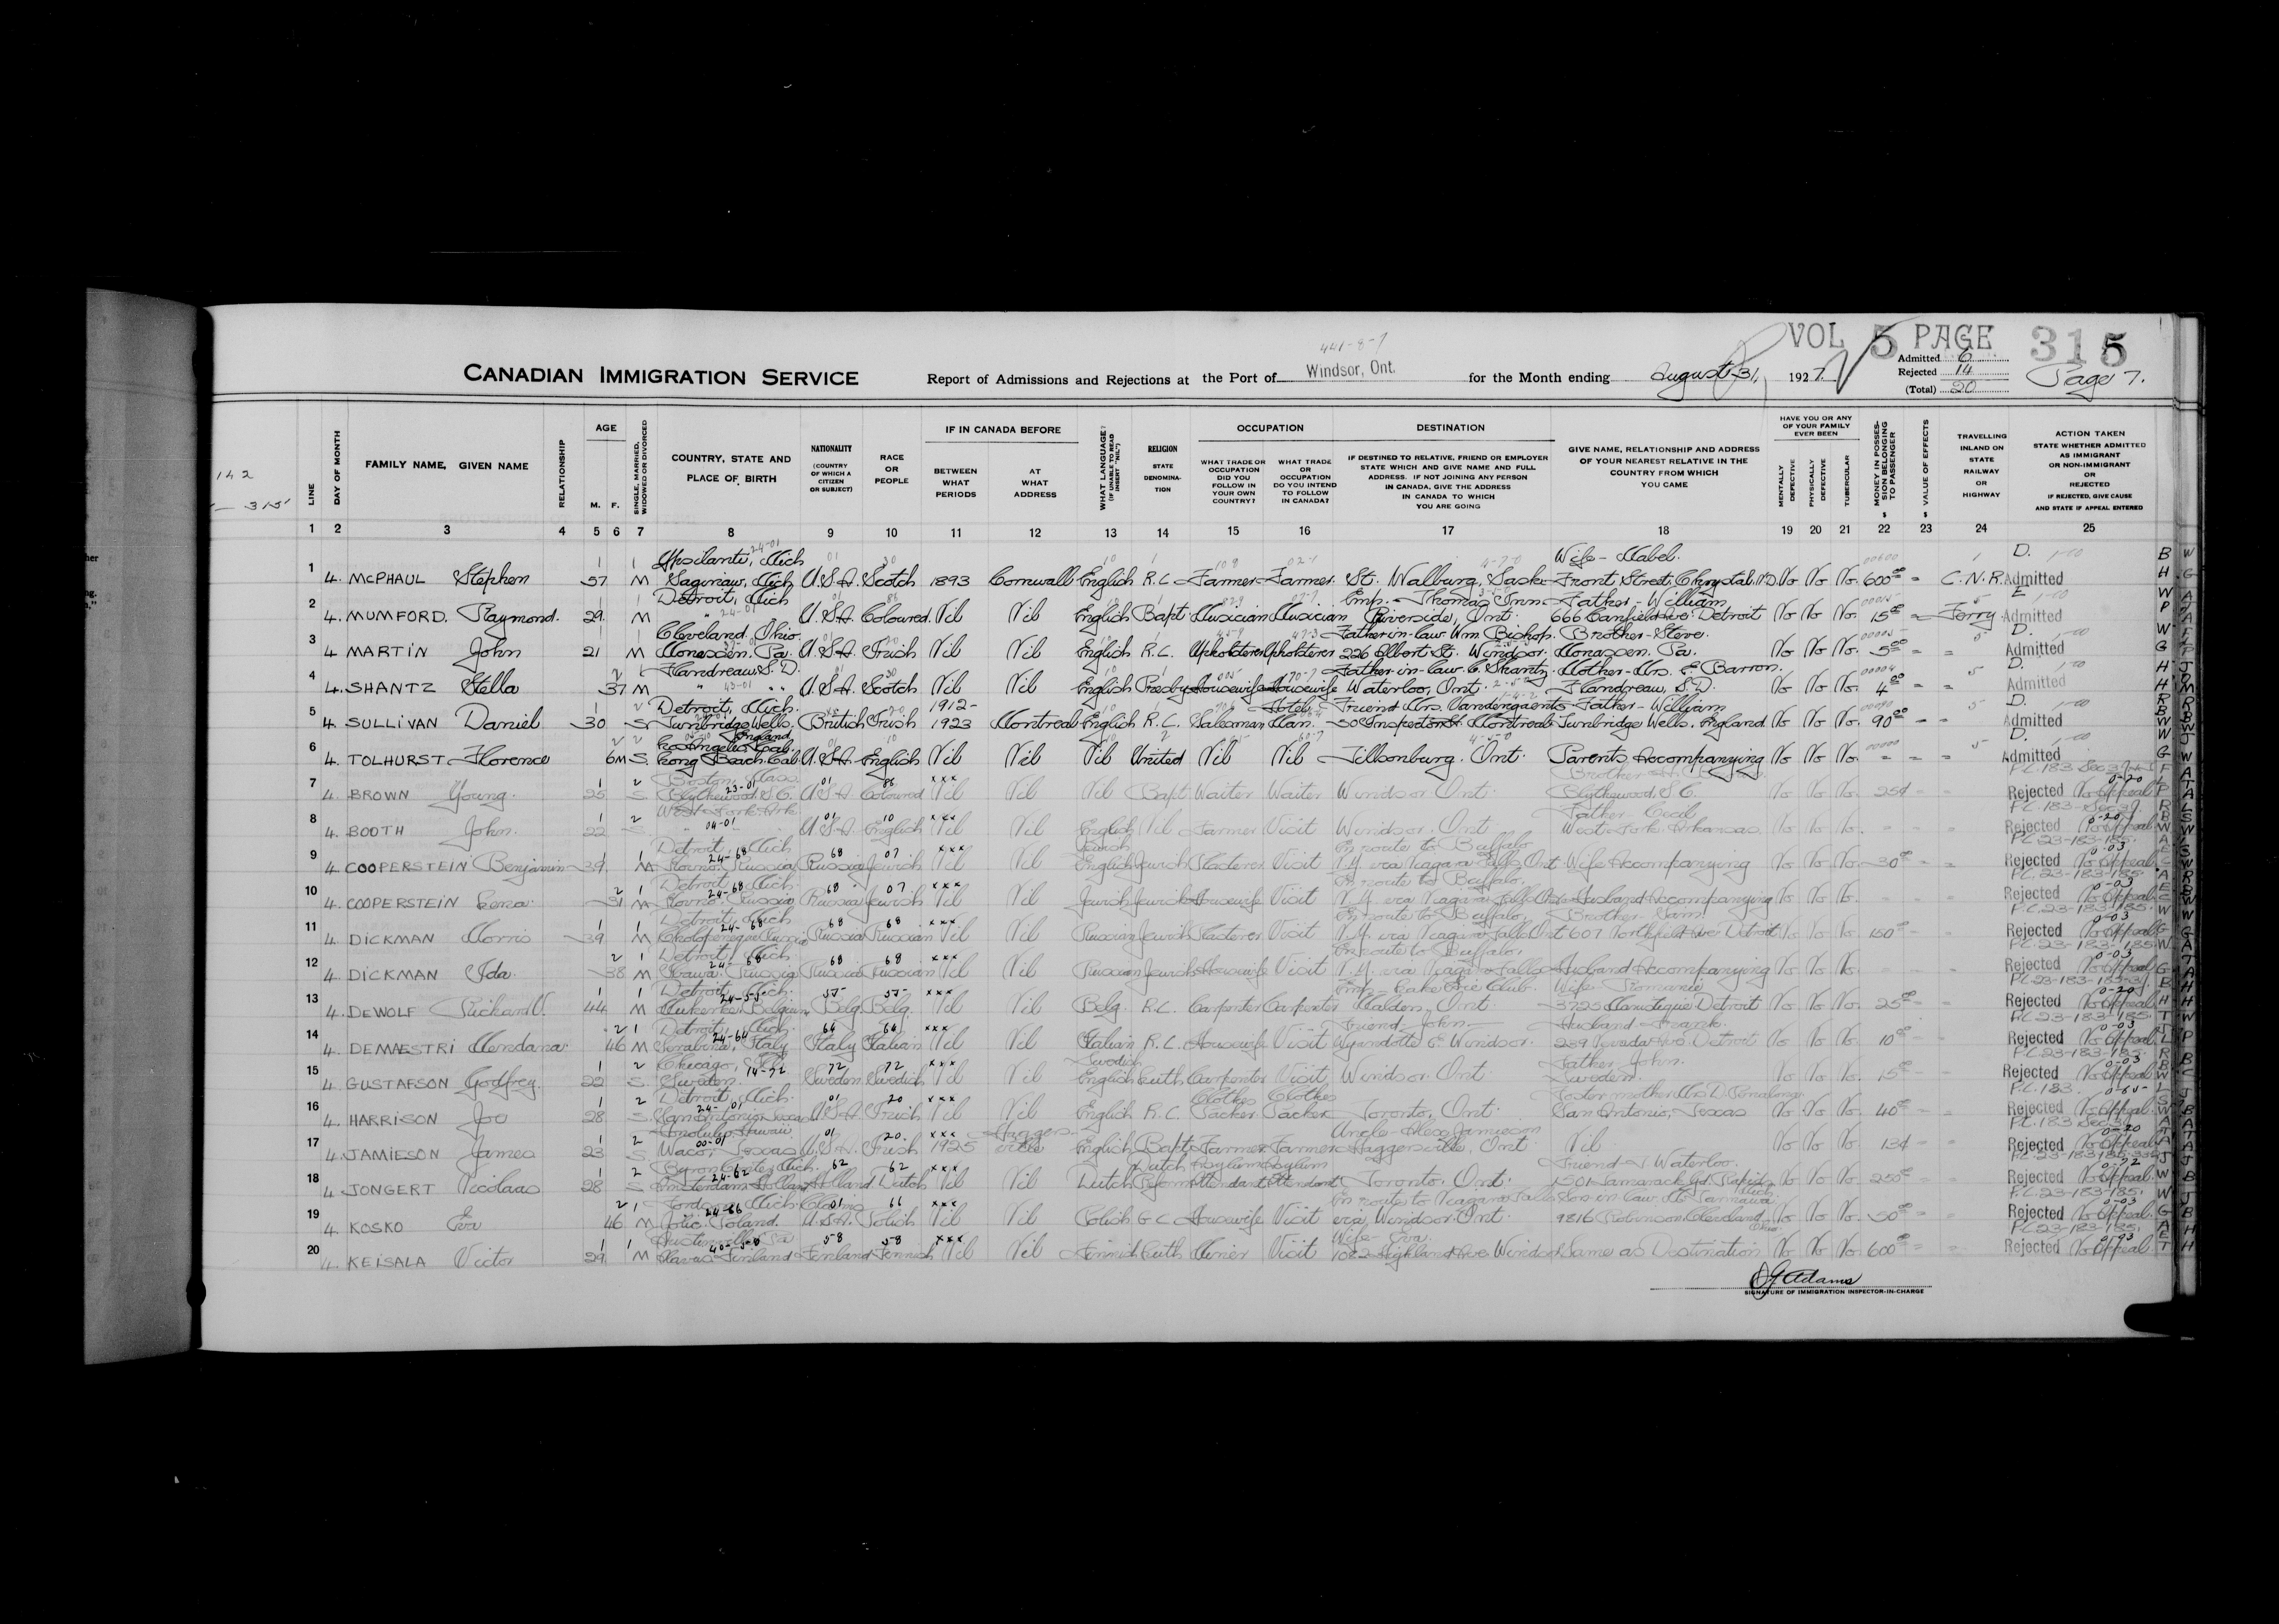 VOL 5 PAGE 315
441-8-7
CANADIAN IMMIGRATION SERVICE Report of Admissions and Rejections at the Port of Windsor, Ont. for the Month ending August 31, 1927.
Admitted 6
Rejected 14
(Total) 20
Page 7.
142
315
LINE
DAY OF MONTH
FAMILY NAME, GIVEN NAME
RELATIONSHIP
AGE
M. F.
SINGLE, MARRIED, WIDOWED OR DIVORCED
COUNTRY, STATE AND PLACE OF BIRTH
NATIONALITY (COUNTRY OF WHICH A CITIZEN OR SUBJECT)
RACE OR PEOPLE
IF IN CANADA BEFORE
BETWEEN WHAT PERIODS
AT WHAT ADDRESS
WHAT LANGUAGE? (IF UNABLE TO READ INSERT "NIL")
RELIGION STATE DENOMINATION
OCCUPATION
WHAT TRADE OR OCCUPATION DID YOU FOLLOW IN YOUR OWN COUNTRY?
WHAT TRADE OR OCCUPATION DO YOU INTEND TO FOLLOW IN CANADA?
DESTINATION
IF DESTINED TO RELATIVE, FRIEND OR EMPLOYER STATE WHICH AND GIVE NAME AND FULL ADDRESS. IF NOT JOINING ANY PERSON IN CANADA, GIVE THE ADDRESS IN CANADA TO WHICH YOU ARE GOING
GIVE NAME, RELATIONSHIP AND ADDRESS OF YOUR NEAREST RELATIVE IN THE COUNTRY FROM WHICH YOU CAME
HAVE YOU OR ANY OF YOUR FAMILY EVER BEEN
MENTALLY DEFECTIVE
PHYSICALLY DEFECTIVE
TUBERCULAR
MONEY IN POSSESSION BELONGING TO PASSENGER $
VALUE OF EFFECTS $
TRAVELLING INLAND ON STATE RAILWAY OR HIGHWAY
ACTION TAKEN STATE WHETHER ADMITTED AS IMMIGRANT OR NON-IMMIGRANT OR REJECTED IF REJECTED, GIVE CAUSE AND STATE IF APPEAL ENTERED
1 2 3 4 5 6 7 8 9 10 11 12 13 14 15 16 17 18 19 20 21 22 23 24 25
Ypsilanti, Mich Wife - Mabel. D.
1 4. MCPHAUL Stephen 57 M Saginaw, Mich U.S.A. Scotch 1893 Cornwall English R.C. Farmer Farmer. St. Walburg, Sask Front Street, Chrystal. N.D. No No No. 600 C.N.R. Admitted
Detroit, Mich Emp. - Thomas Inn Father - William E
2 4. MUMFORD. Raymond. 29. M " U.S.A. Coloured. Nil Nil English Bapt Musician Musician Riverside, Ont. 666 Canfield Ave. Detroit No No No. 15 Ferry Admitted
Cleveland, Ohio. Father-in-law Wm. Bishop. Brother - Steve. D.
3 4 MARTIN John 21 M Monessen. Pa. U.S.A. Irish Nil Nil English R.C. Upholsterer Upholsterer 226 Elbert St. Windsor. Monassen. Pa. No No No. 5 Admitted
Flandreau S.D. Father-in-law. C. Shantz. Mother - Mrs. E. Barron. D.
4 4. SHANTZ Stella 37 M " U.S.A. Scotch Nil Nil English Presby Housewife Housewife Waterloo, Ont. Flandreau, S.D. No No No. 4 Admitted
Detroit, Mich. 1912- Hotel Friend Mrs. Father - William D.
5 4. SULLIVAN Daniel 30 S Tunbridge Wells. England British Irish 1923 Montreal English R.C. Salesman Man. 50 Inspector St Montreal Tunbridge Wells, England No No No. 90 Admitted
Los Angeles, Cal. D.
6 4. TOLHURST Florence 6M S. Long Beach. Cal. U.S.A. English Nil Nil Nil United Nil Nil Tillsonburg. Ont. Parents Accompanying No No No. Admitted
Boston, Mass. Brother P.C. 183 Sec 3
7 4. BROWN Young. 25 S Blythewood, S.C. U.S.A. Coloured Nil Nil Nil Bapt Waiter Waiter Windsor. Ont. Blythewood, S.C. No No No. 25¢ Rejected No Appeal
West Fork. Ark Father - Cecil P.C. 183 - Sec 3
8 4. BOOTH John. 22 S. U.S.A. English Nil Nil English Nil Farmer Visit Windsor. Ont West Fork. Arkansas. No No No. Rejected No Appeal
Detroit, Mich Jewish En route to Buffalo P.C. 23-183-185.
9 4. COOPERSTEIN Benjamin 39. M Kovno. Russia Russia Jewish Nil Nil English Jewish Plasterer Visit N.Y. via Niagara Falls Ont. Wife Accompanying No No No. 30 Rejected No Appeal
Detroit, Mich. En route to Buffalo. P.C. 23-183-185
10 4. COOPERSTEIN Lena. 31 M Kovno. Russia Russia Jewish Nil Nil Jewish Jewish Housewife Visit N.Y. via Niagara Falls Ont. Husband Accompanying No No No. Rejected No Appeal
Detroit, Mich En route to Buffalo, Brother - Sam. P.C. 23-183-185.
11 4. DICKMAN Morris 39. M Russia Russia Russian Nil Nil Russian Jewish Plasterer Visit N.Y. via Niagara Falls Ont 607 Detroit No No No. 150 Rejected No Appeal
Detroit, Mich En route to Buffalo, P.C. 23-183-185
12 4. DICKMAN Ida 38 M Russia Russia Russian Nil Nil Russian Jewish Housewife Visit N.Y. via Niagara Falls Husband Accompanying No No No. Rejected No Appeal
Detroit, Mich. Emp - Lake Erie Club. Wife - Romanie P.C. 23-183-
13 4. DEWOLF Richard V. 44 M Belgium Belg. Belg. Nil Nil Belg. R.C. Carpenter Carpenter Malden, Ont. 3725 Detroit No No No. 25 Rejected No Appeal
Detroit, Mich. Friend - John Husband - Frank. P.C. 23-183-185.
14 4. DEMAESTRI 46 M Italy Italy Italian Nil Nil Italian R.C. Housewife Visit Wyandotte E. Windsor. 239 Nevada Ave Detroit No No No. 10 Rejected No Appeal
Chicago, Ill. Swedish Father John. P.C. 23-183-
15 4. GUSTAFSON Godfrey. 22 S. Sweden. Sweden Swedish Nil Nil English Luth Carpenter Visit Windsor. Ont. Sweden. No No No. 15 Rejected No Appeal
Detroit, Mich. Clothes Clothes Foster mother Mrs D. P.C. 183.
16 4. HARRISON Joo 28 S. San Antonio, Texas U.S.A. Irish Nil Nil English R.C. Packer Packer Toronto, Ont. San Antonio, Texas No No No. 40 Rejected No Appeal.
Honolulu, Hawaii Hagers- Uncle - Alex Jamieson P.C. 183 Sec 3
17 4. JAMIESON James 23 S Waco, Texas U.S.A. Irish 1925 ville English Bapt Farmer Farmer Haggersville, Ont Nil No No No. 13¢ Rejected No Appeal
Byron Center, Mich. Dutch Asylum Asylum Friend - J Waterloo.
18 4. JONGERT Nicolaas 28 S Amsterdam Holland Holland Dutch Nil Nil Dutch Reform Attendant Attendant Toronto. Ont. 1501 Tamarack Gd. Rapids Mich No No No. 250 Rejected No Appeal
Mich. En route to Niagara Falls Son in Law P.C. 23-183-185.
19 4. KOSKO Eva 46 M Poland. U.S.A. Polish Nil Nil Polish G.C. Housewife Visit via Windsor. Ont. 9816 Robinson, Cleveland Ohio No No No. 50 Rejected No Appeal.
Wife - Eva. P.C. 23-183-185.
20 4. KEISALA Victor 29 M Finland Finland Finnish Nil Nil Finnish Luth Miner Visit 1082 Highland Ave Windsor Same as Destination No No No. 600 Rejected No Appeal.
SIGNATURE OF IMMIGRATION INSPECTOR-IN-CHARGE